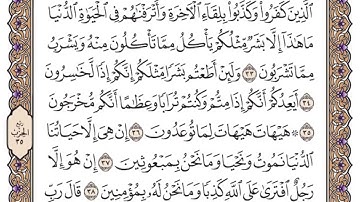 ٱلَّذِينَ كَفَرُوا۟ وَكَذَّبُوا۟ بِلِقَآءِ ٱلْءَاخِرَةِ وَأَتْرَفْنَٰهُمْ فِى ٱلْحَيَوٰةِ ٱلدُّنْيَا
مَا هَٰذَآ إِلَّا بَشَرٌ مِّثْلُكُمْ يَأْكُلُ مِمَّا تَأْكُلُونَ مِنْهُ وَيَشْرَبُ
مِمَّا تَشْرَبُونَ ٣٣ وَلَئِنْ أَطَعْتُم بَشَرًا مِّثْلَكُمْ إِنَّكُمْ إِذًا لَّخَٰسِرُونَ
٣٤ أَيَعِدُكُمْ أَنَّكُمْ إِذَا مِتُّمْ وَكُنتُمْ تُرَابًا وَعِظَٰمًا أَنَّكُم مُّخْرَجُونَ
٣٥ هَيْهَاتَ هَيْهَاتَ لِمَا تُوعَدُونَ ٣٦ إِنْ هِىَ إِلَّا حَيَاتُنَا
ٱلدُّنْيَا نَمُوتُ وَنَحْيَا وَمَا نَحْنُ بِمَبْعُوثِينَ ٣٧ إِنْ هُوَ إِلَّا
رَجُلٌ ٱفْتَرَىٰ عَلَى ٱللَّهِ كَذِبًا وَمَا نَحْنُ لَهُۥ بِمُؤْمِنِينَ ٣٨ قَالَ رَبِّ
ربع
الحزب
٣٥